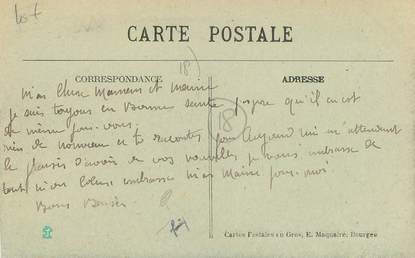 lot
CARTE POSTALE
CORRESPONDANCE
18)
ADRESSE
Mas chere Mamans et mamie
je suis toujous en bonne sente j'espre qu'il en est
de meme pour vous.
rien de nouveau a te raconter pour aujourd hui en attendant
le plaisir d'avoir de vos nouvelles je vous embrasse de
tout mon coeur embrasse mas pour moi
Bons Baisers
18
Cartes Postales en Gros, E. Maquaire, Bourges